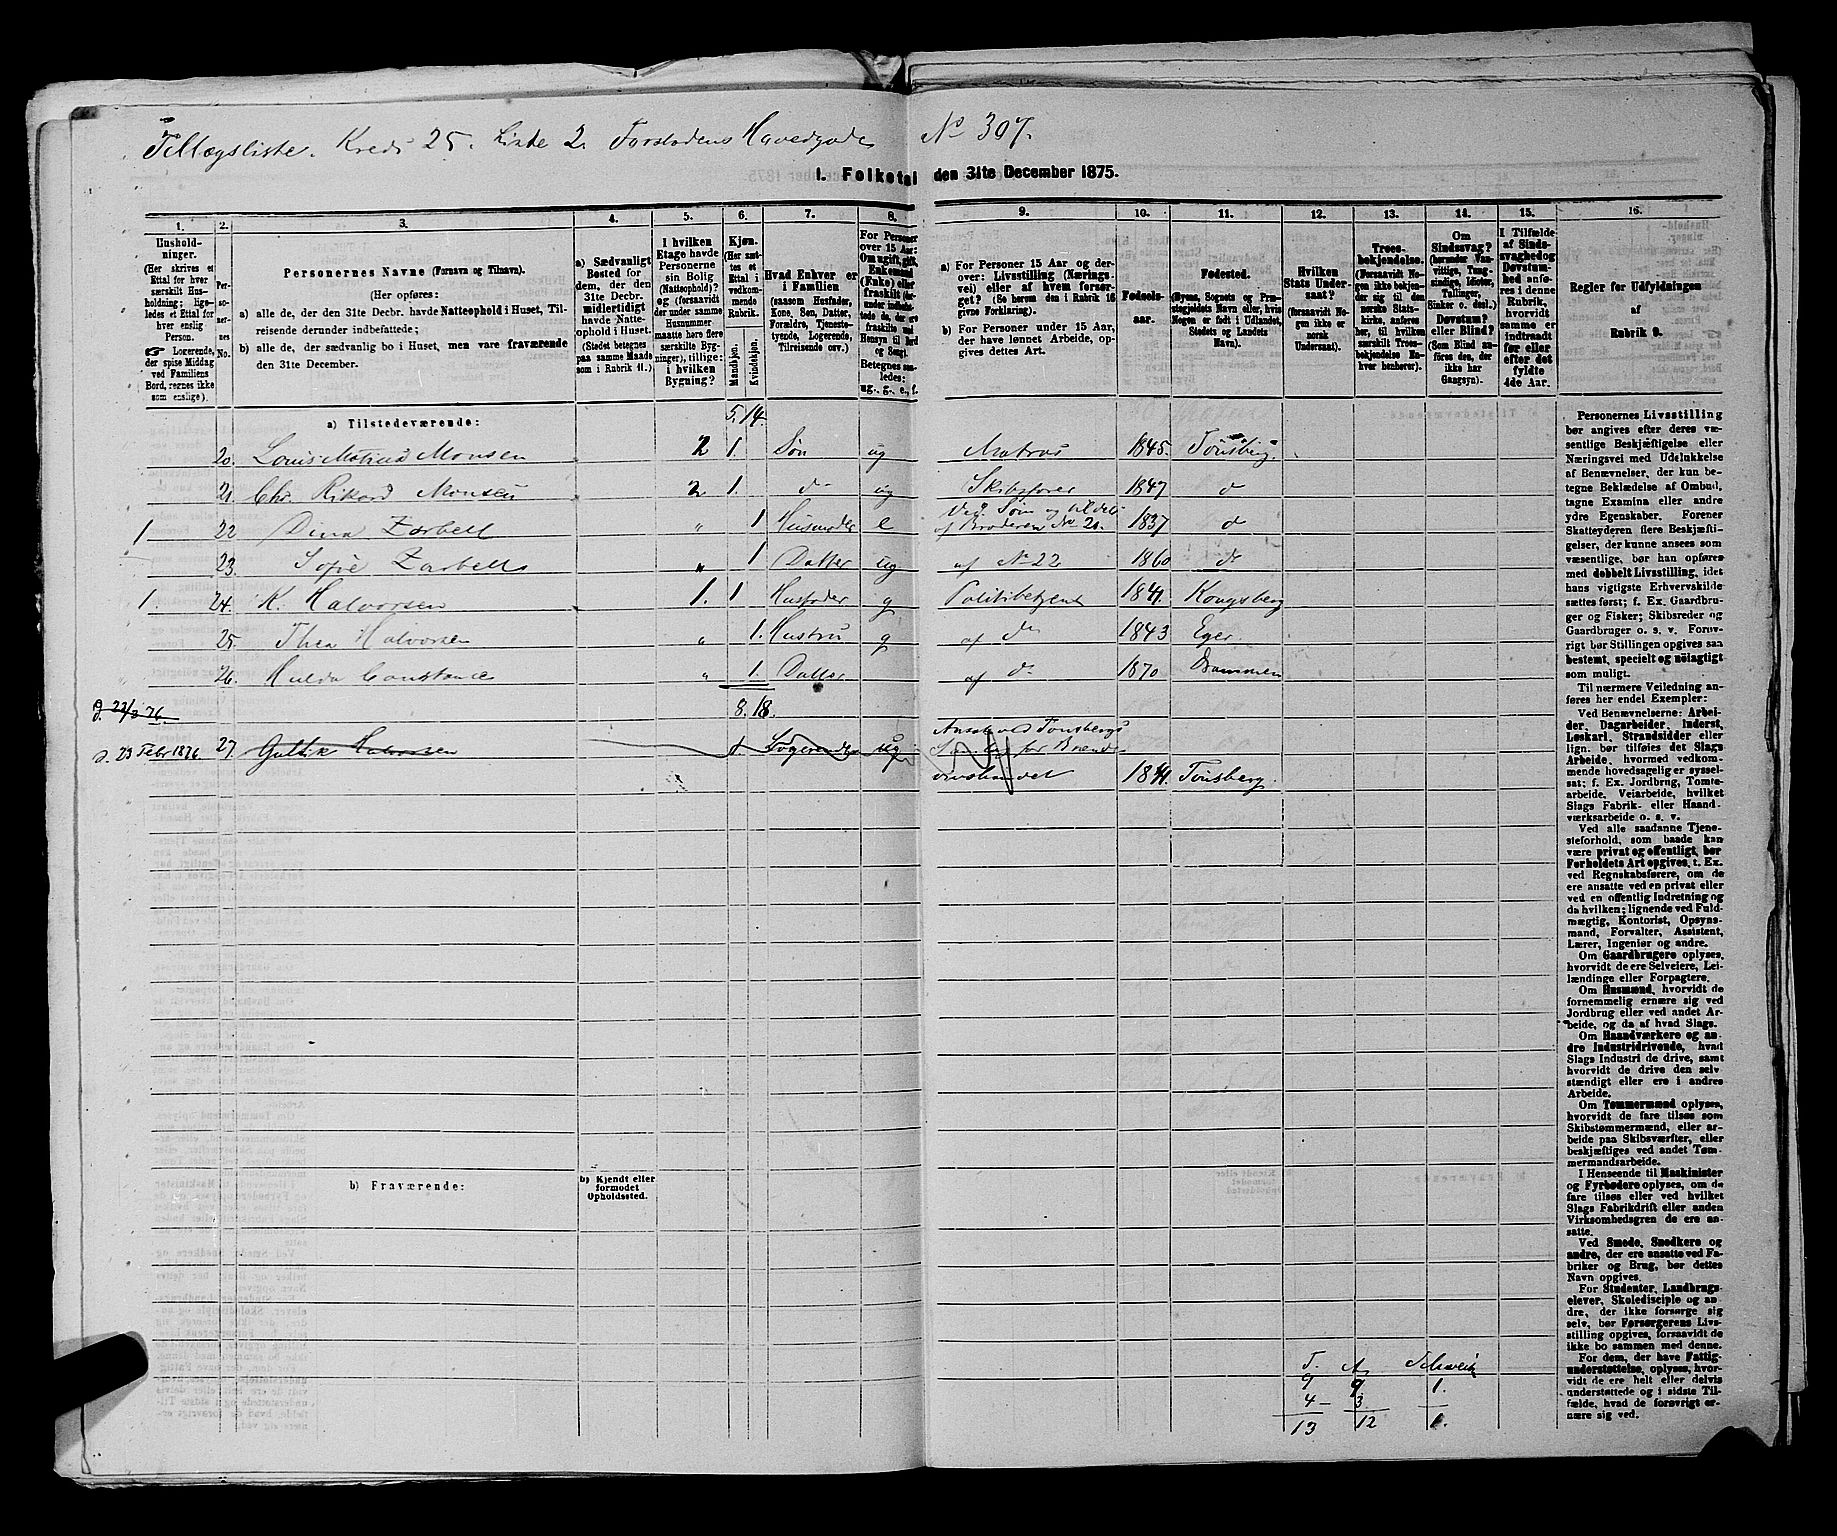 Tillægsliste. Kreds 25. Liste 2. Forstadens Hovedgade No 307.
1. Folketal den 31te December 1875.
1. 2. 3. 4. 5. 6. 7. 8. 9. 10. 11. 12. 13. 14. 15. 16.
Husholdninger. (Her skrives et Ettal for hver særskilt Husholdning; ligeledes et Ettal for hver enslig Person. ☞ Logerende, der spise Middag ved Familiens Bord, regnes ikke som enslige).
Personernes No.
Personernes Navne (Fornavn og Tilnavn).
(Her opføres:
a) alle de, der den 31te Decbr. havde Natteophold i Huset, Tilreisende derunder indbefattede;
b) alle de, der sædvanlig bo i Huset, men vare fraværende den 31te December.
a) Sædvanligt Bosted for dem, der den 31te Decbr. midlertidigt havde Natteophold i Huset. (Stedet betegnes paa samme Maade som i Rubrik 11.)
I hvilken Etage havde Personerne sin Bolig (Natteophold)? og (forsaavidt der under samme Husnummer maatte høre flere særskilte Bygninger), tillige: i hvilken Bygning?
Kjøn. (Her sættes et Ettal i vedkommende Rubrik. Mandkjøn. Kvindekjøn.
Hvad Enhver er i Familien (saasom Husfader, Kone, Søn, Datter, Forældre, Tjenestetyende, Logerende, Tilreisende osv.)
For Personer over 15 Aar: Om ugift, gift, Enkemand (Enke) eller fraskilt
Betegnes saaledes: ug., g., e., f.
a) For Personer 15 Aar og derover: Livsstilling (Næringsvei) eller af hvem forsørget? (Se herom den i Rubrik 16 givne Forklaring).
b) For Personer under 15 Aar, der have lønnet Arbeide, opgives dettes Art.
Fødselsaar.
Fødested. (Byens, Sognets og Præstegjeldets Navn eller, hvis Nogen er født i Udlandet, Stedets og Landets Navn).
Hvilken Stats Undersaat? (forsaavidt Nogen ikke er norsk Undersaat).
Troesbekjendelse. (Forsaavidt Nogen ikke bekjender sig til den norske Statskirke, anføres her, til hvilken særskilt Troesbekjendelse Enhver henhører).
Om Sindssvag? (herunder Vanvittige, Tungsindige, Idioter, Tullinger, Sinker o. desl.) Døvstum? eller Blind? (Som Blind anføres den, der ikke har Gangsyn).
I Tilfælde af Sindssvaghed og Døvstumhed anføres i denne Rubrik, hvorvidt samme er indtraadt før eller efter det fyldte 4de Aar.
Regler for Udfyldningen af Rubrik 9.
a) Tilstedeværende: 5. 14.
20. Louis Monsen 2 1. Søn ug Matros 1845. Tønsberg.
21. Chr. Rikard Monsen 2 1. do ug Skibsfører 1847 do
1 22 Dina Zarbell " 1 Husmoder e Søn og til dels af Broderen No 21. 1837 do
23. Sofie Zarbell " 1 Datter ug af No 22 1860 do
1. 24. K. Halvorsen 1. 1 Husfader g Politibetjent 1841. Kongsberg
25. Thea Halvorsen " 1. Hustru g af do 1843 Eger.
26. Hulda Constance " 1. Datter af do 1870 Drammen
8. 18.
d. 23 Febr 1876. 27. Halvorsen 1 Logerende ug Ansat ved Tønsbergs Samlag for Brændevinshandel 1841. Tønsberg.
b) Fraværende:
b) Kjendt eller formodet Opholdssted.
T. A
9 9 1.
4 – 3
13 12 1.
Personernes Livsstilling
bør angives efter deres væ-
sentlige Beskjæftigelse eller
Næringsvei med Udelukkelse
af Benævnelser, der kun be-
tegne Beklædelse af Ombud,
tagne Examina eller andre
ydre Egenskaber. Forener
Skatteyderen flere Beskjæfti-
gelser, der kunne ansees som
væsentlige, bør han opføres
med dobbelt Livsstilling, idet
hans vigtigste Erhvervskilde
sættes først; f. Ex. Gaardbru-
ger og Fisker; Skibsreder og
Gaardbruger o. s. v. Forøv-
rigt bør Stillingen opgives saa
bestemt, specielt og nöiagtigt
som muligt.
Til nærmere Veiledning an-
føres her endel Exempler:
Ved Benævnelserne: Arbei-
der, Dagarbeider, Inderst,
Løskarl, Strandsidder eller
lign. bør tilføies det Slags
Arbeide, hvormed vedkom-
mende hovedsagelig er syssel-
sat; f. Ex. Jordbrug, Tomte-
arbeide, Veiarbeide, hvilket
Slags Fabrik- eller Haand-
værksarbeide o. s. v.
Ved alle saadanne Tjene-
steforhold, som baade kan
være privat og offentligt, bør
Forholdets Art opgives, t. Ex.
ved Regnskabsførere, om de
ere ansatte ved en privat eller
ved en offentlig Indretning og
da hvilken; lignende ved Fuld-
mægtig, Kontorist, Opsyns-
mand, Forvalter, Assistent,
Lærer, Ingeniør og andre.
Om Gaardbrugere oplyses,
hvorvidt de ere Selveiere, Lei-
lændinge eller Forpagtere.
Om Husmænd, hvorvidt de
fornemmelig ernære sig ved
Jordbrug eller ved andet Ar-
beide, og da af hvad Slags.
Om Haandværkere og an-
dre Industridrivende, hvad
Slags Industri de drive, samt
hvorvidt de drive den selv-
stændigt eller ere i andres
Arbeide.
Om Tømmermænd oplyses,
hvorvidt de fare tilsøs som
Skibstømmermænd, eller ar-
beide paa Skibsværfter, eller
beskjæftiges ved andet Tøm-
mermandsarbeide.
I Henseende til Maskinister
og Fyrbødere oplyses, om de
fare tilsøs eller ved hvilket
Slags Fabrikdrift eller anden
Virksomhedsgren de ere an-
satte.
Ved Smede, Snedkere og
andre, der ere ansatte ved Fa-
briker og Brug, bør dettes
Navn opgives.
For Studenter, Landbrugs-
elever, Skoledisciple og an-
dre, der ikke forsørge sig
selv, bør Forsørgerens Livs-
stilling opgives, forsaavidt de
ikke bo sammen med denne.
For dem, der have Fattig-
understøttelse, oplyses, hvor-
vidt de ere helt eller delvis
understøttede og i sidste Til-
fælde, hvad de forøvrigt er-
nære sig ved.